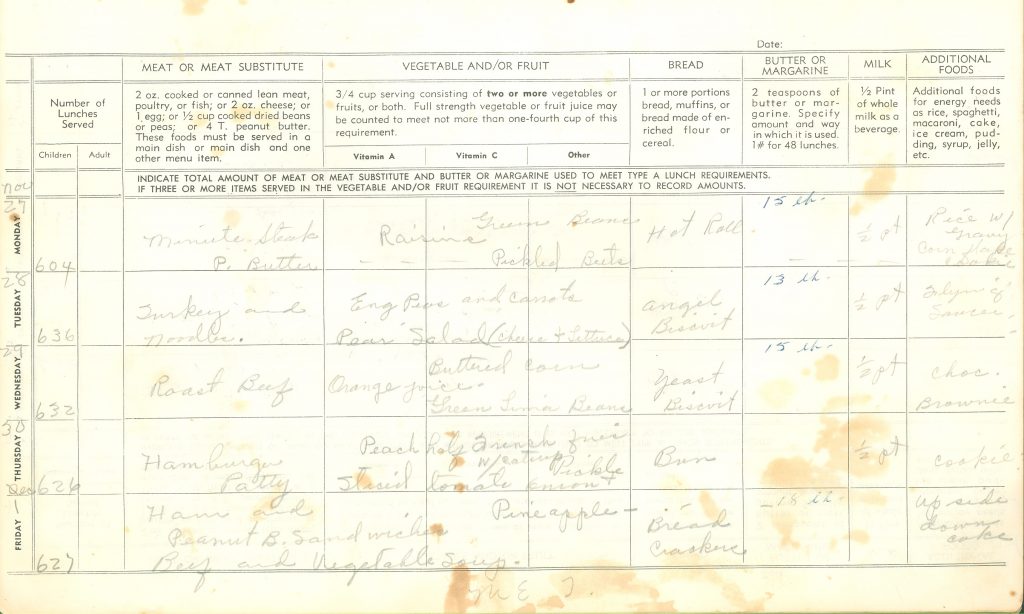 Date:
MEAT OR MEAT SUBSTITUTE
VEGETABLE AND/OR FRUIT
BREAD
BUTTER OR
MARGARINE
MILK
ADDITIONAL
FOODS
Number of
Lunches
Served
Children
Adult
2 oz. cooked or canned lean meat,
poultry, or fish; or 2 oz. cheese; or
1 egg; or ½ cup cooked dried beans
or peas; or 4 T. peanut butter.
These foods must be served in a
main dish or main dish and one
other menu item.
3/4 cup serving consisting of two or more vegetables or
fruits, or both. Full strength vegetable or fruit juice may
be counted to meet not more than one-fourth cup of this
requirement.
Vitamin A
Vitamin C
Other
1 or more portions
bread, muffins, or
bread made of en-
riched flour or
cereal.
2 teaspoons of
butter or mar-
garine. Specify
amount and way
in which it is used.
1# for 48 lunches.
½ Pint of
whole
milk as a
beverage.
Additional foods
for energy needs
as rice, spaghetti,
macaroni, cake,
ice cream, pud-
ding, syrup, jelly,
etc.
INDICATE TOTAL AMOUNT OF MEAT OR MEAT SUBSTITUTE AND BUTTER OR MARGARINE USED TO MEET TYPE A LUNCH REQUIREMENTS.
IF THREE OR MORE ITEMS SERVED IN THE VEGETABLE AND/OR FRUIT REQUIREMENT IT IS NOT NECESSARY TO RECORD AMOUNTS.
Nov
27
MONDAY
604
Minute Steak
P. Butter
Green Beans
Raisins
Pickled Beets
Hot Roll
15 lb.
½ pt
Rice w/
Gravy
Corn
28
TUESDAY
636
Turkey and
Noodles.
Eng Peas and carrots
Pear Salad (Cheese + Lettuce)
Angel
Biscuit
13 lb.
½ pt
29
WEDNESDAY
632
Roast Beef
Buttered corn
Orange juice.
Green Lima Beans
Yeast
Biscuit
15 lb.
½ pt
Choc.
Brownie
30
THURSDAY
626
Hamburger
Patty
Peach half French fries
w/catsup Pickle
Sliced tomato onion +
Bun
½ pt
Cookie
Dec
1
FRIDAY
627
Ham and
Peanut B. Sandwiches
Beef and Vegetable Soup.
Pineapple -
Bread
Crackers
18 lb.
Up side
down
cake